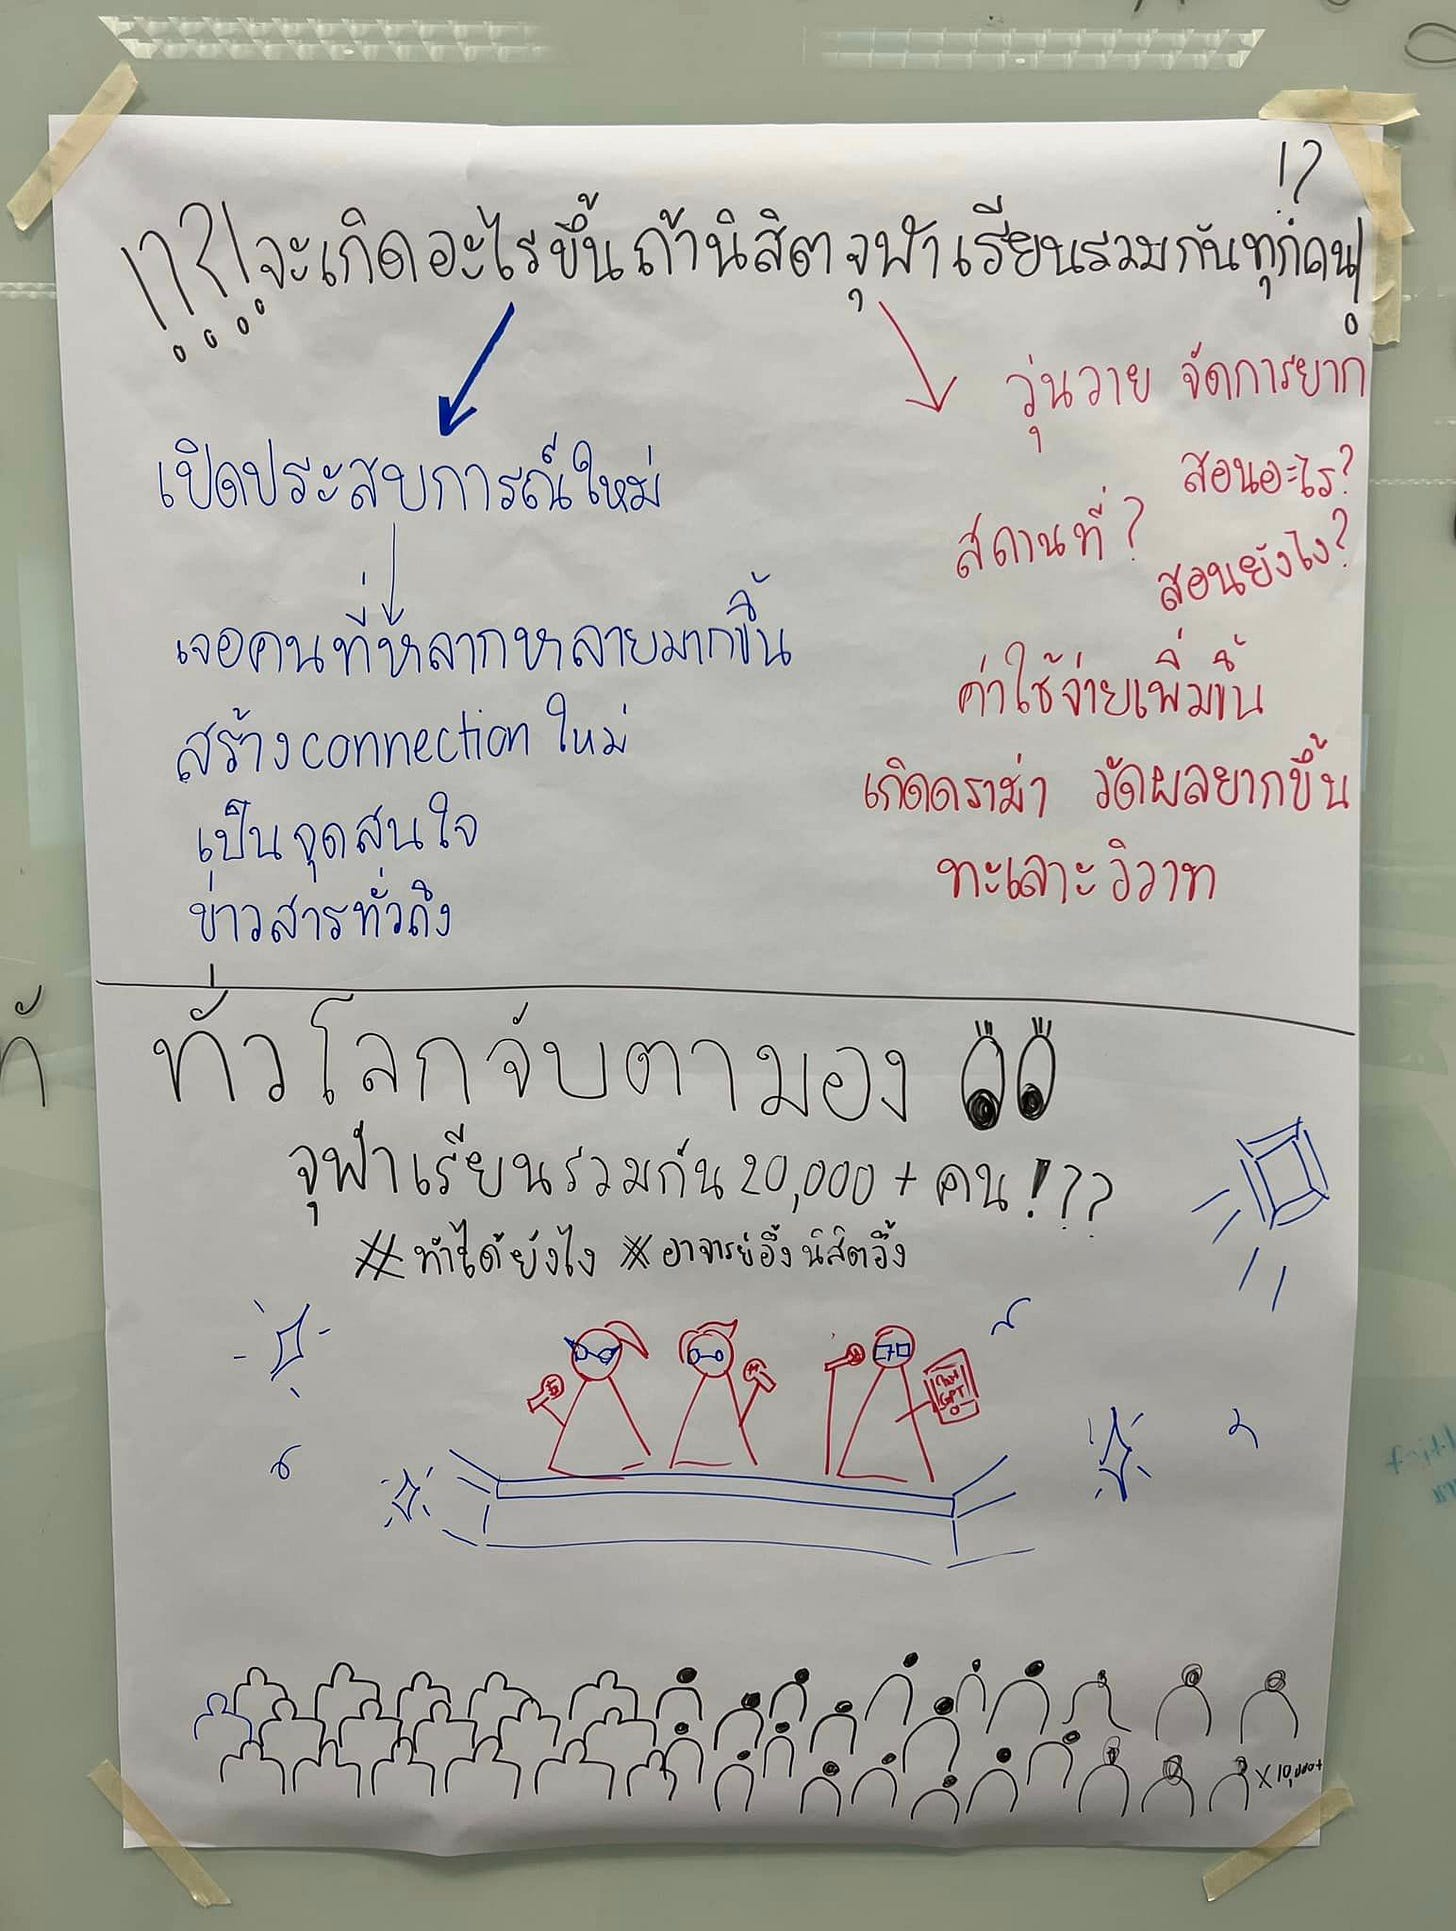 !?
!?!?! จะเกิดอะไรขึ้นถ้านิสิตจุฬาเรียนรวมกันทุกคน!
เปิดประสบการณ์ใหม่
เจอคนที่หลากหลายมากขึ้น
สร้างconnectionใหม่
เป็นจุดสนใจ
ข่าวสารทั่วถึง
วุ่นวาย จัดการยาก
สอนอะไร?
สถานที่?
สอนยังไง?
ค่าใช้จ่ายเพิ่มขึ้น
เกิดดราม่า วัดผลยากขึ้น
ทะเลาะวิวาท
ทั่วโลกจับตามอง
จุฬาเรียนรวมกัน 20,000+ คน!??
#ทำได้ยังไง #อาจารย์อึ้งนิสิตอึ้ง
Chat
GPT
X 10,000+